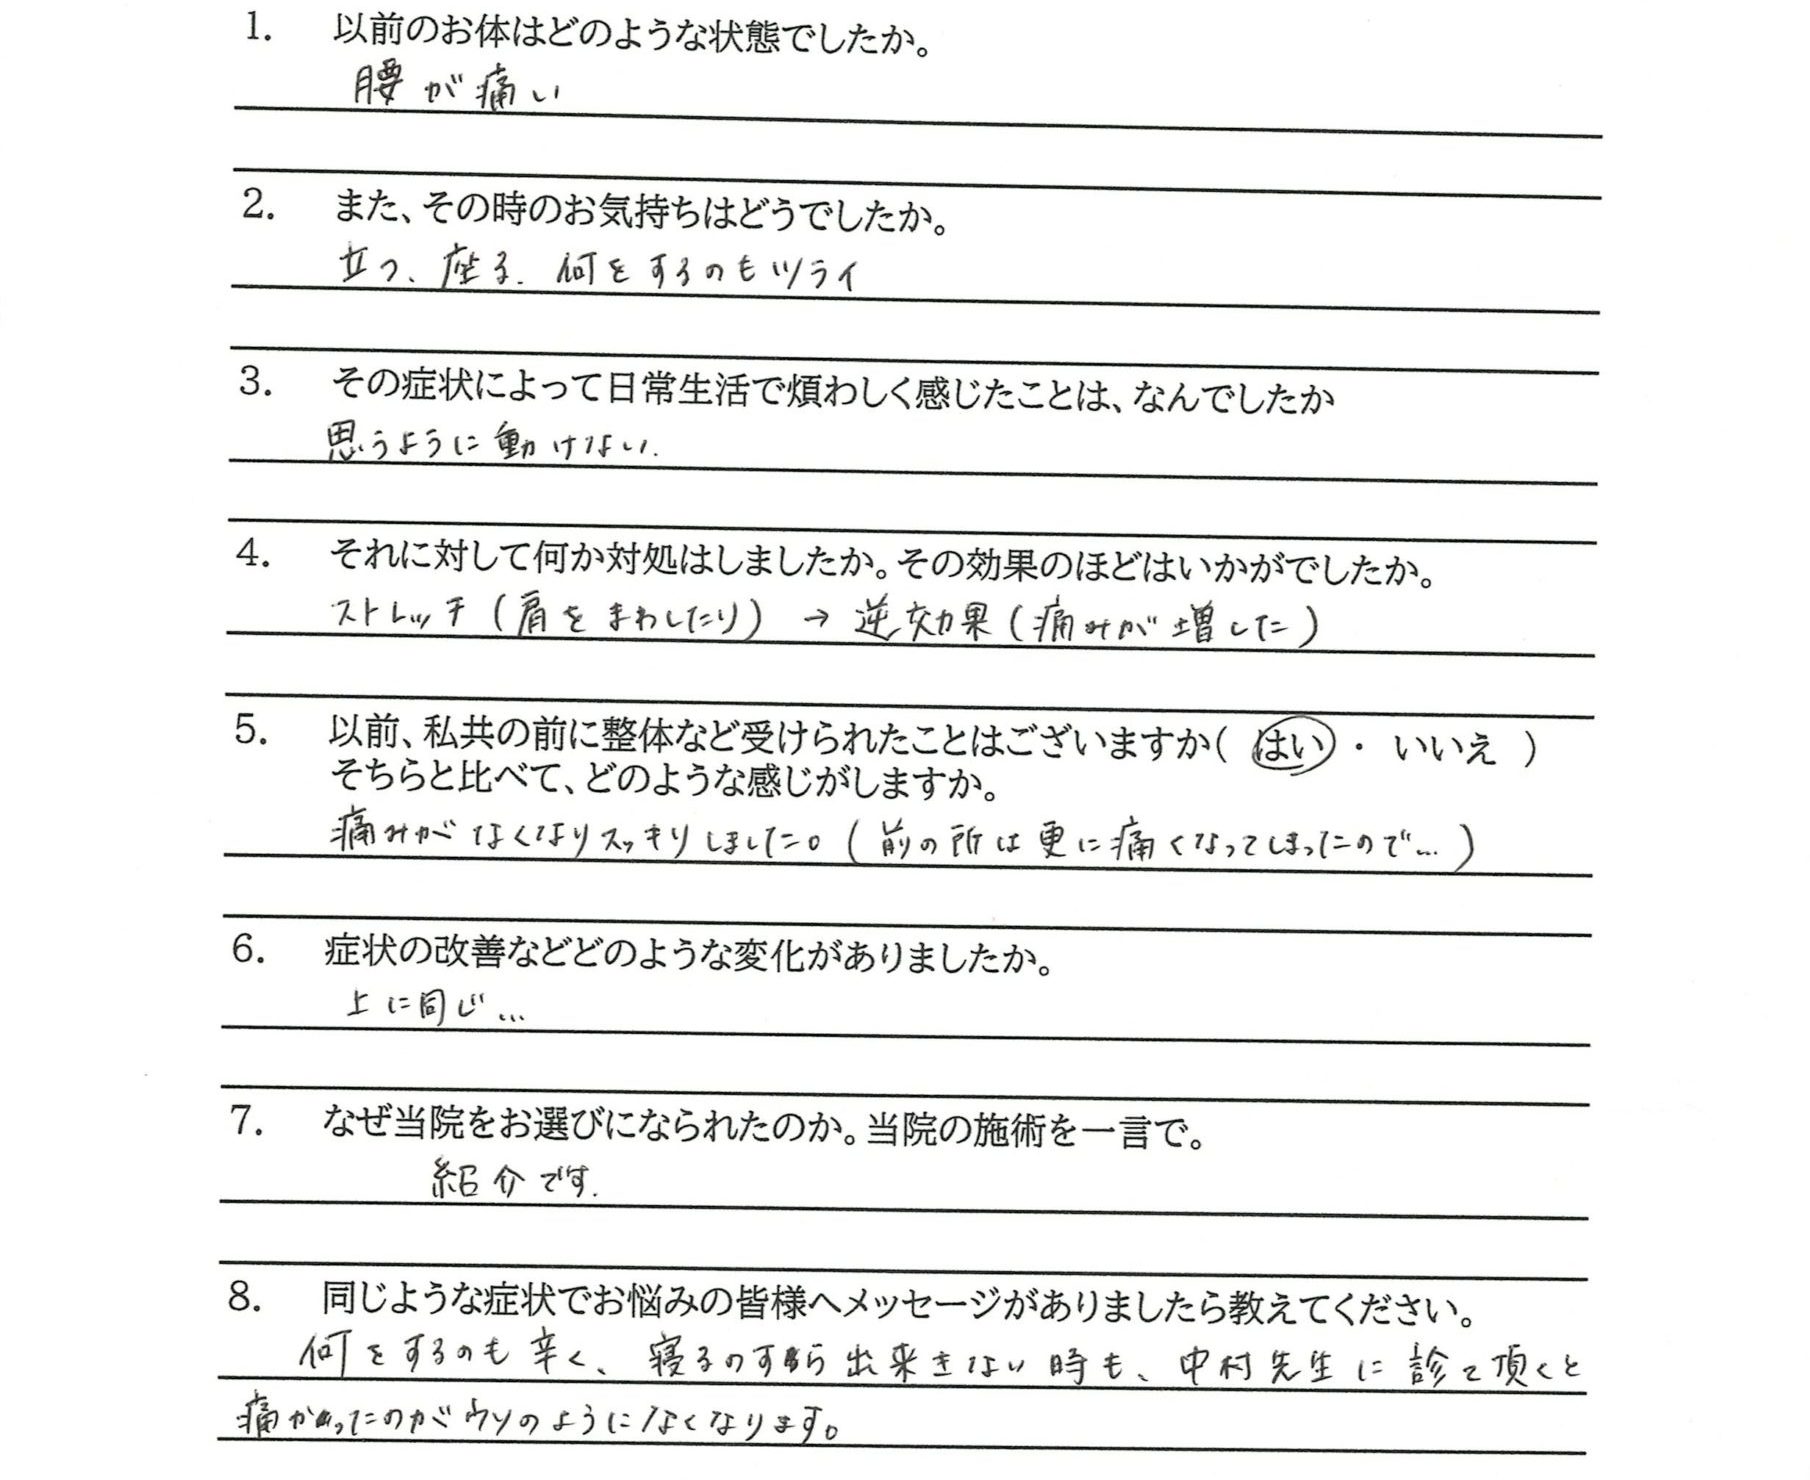 1. 以前のお体はどのような状態でしたか。
腰が痛い
2. また、その時のお気持ちはどうでしたか。
立つ、座る、何をするのもツライ
3. その症状によって日常生活で煩わしく感じたことは、なんでしたか
思うように動けない.
4. それに対して何か対処はしましたか。その効果のほどはいかがでしたか。
ストレッチ(肩をまわしたり) → 逆効果(痛みが増した)
5. 以前、私共の前に整体など受けられたことはございますか( はい ・ いいえ )
そちらと比べて、どのような感じがしますか。
痛みがなくなりスッキリしました。(前の所は更に痛くなってしまったので…)
6. 症状の改善などどのような変化がありましたか。
上に同じ…
7. なぜ当院をお選びになられたのか。当院の施術を一言で。
紹介です.
8. 同じような症状でお悩みの皆様へメッセージがありましたら教えてください。
何をするのも辛く、寝るのすら出来きない時も、中村先生に診て頂くと
痛かったのがウソのようになくなります。